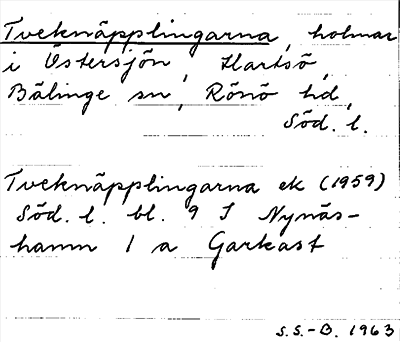 Tveknäpplingarna, holmar
i Östersjön, Hartsö,
Bälinge sn, Rönö hd,
Söd. l.
Tveknäpplingarna ek (1959)
Söd. l. bl. 9 I Nynäs-
hamn 1 a Garkast
S.S.-B. 1963